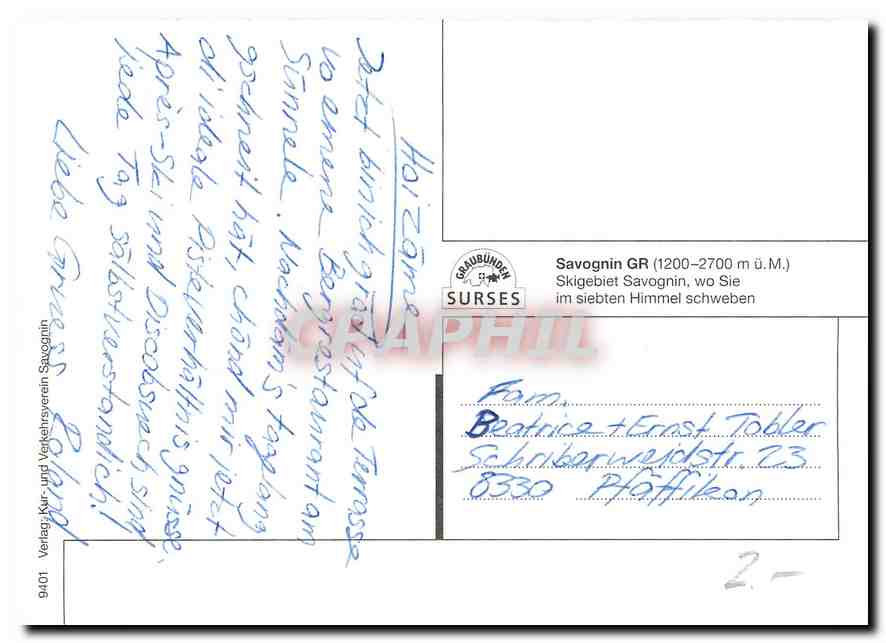 Hoi Zäme
Jetzt bin ich grad uf de Terrasse
vo emene Bergrestaurant am
Sünnele. Nachdäm's tagelang
gschneit hät, chönd mir jetzt
di ideale Pistenverhältnis gnüsse.
Après-Ski und Discobsuech sind
jede Tag sälbstverständlich!
Liebe Gruess Roland
9401 Verlag: Kur- und Verkehrsverein Savognin
GRAUBÜNDEN
SURSES
Savognin GR (1200–2700 m ü.M.)
Skigebiet Savognin, wo Sie
im siebten Himmel schweben
CPAPHIL
Fam.
Beatrice + Ernst Tobler
Schriberweidstr. 23
8330 Pfäffikon
2.–